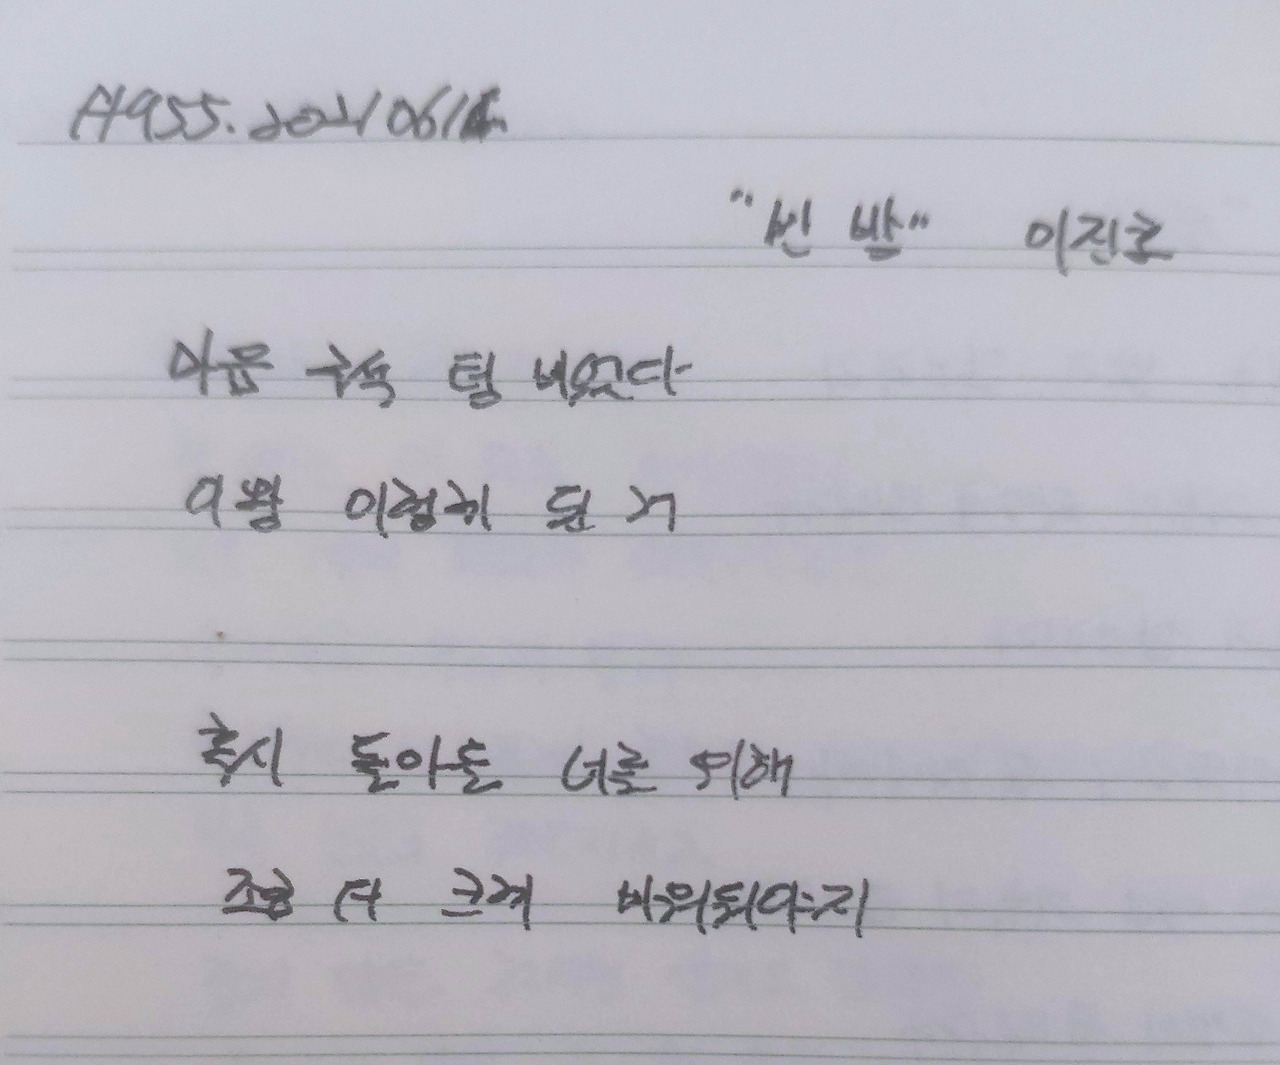 시955.202106
"빈 밭" 이진호
마음 구석 텅 비었다
이왕 이렇게 된 거
혹시 돌아올 너를 위해
조금 더 크게 비워둬야지